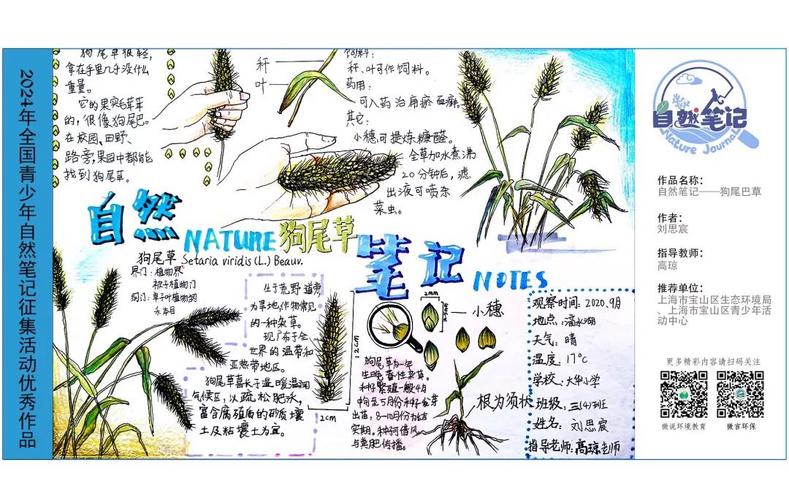 2024年全国青少年自然笔记征集活动优秀作品
狗尾草很轻,
拿在手里几乎没什么
重量。
它的果实毛茸茸
的,很像狗尾巴。
在校园、田野、
路旁,果园中都能
找到狗尾草。
秆
叶
饲料:
秆、叶可作饲料。
药用:
可入药治痈瘀、面癣。
其它:
小穗可提炼糠醛。
全草加水煮沸
20分钟后,滤
出液可喷杀
菜虫。
自然
NATURE
狗尾草
笔记
NOTES
狗尾草 Setaria viridis(L.) Beauv.
界门:植物界
种子植物门
单子叶植物纲
禾本目
生于荒野、道旁
为旱地作物常见
的一种杂草。
现广布于全
世界的温带和
亚热带地区。
狗尾草喜长于温暖湿润
气候区,以疏松肥水,
富含腐殖质的砂质壤
土及粘壤土为宜。
12cm
2cm
2mm
小穗
狗尾草为一年
生晚春性杂草。
种子繁殖,一般4月
中旬至5月份种子发芽
出苗,8-10月份为结
实期。种子可借风
与粪肥传播。
根为须状
观察时间:2020.9月
地点:滴水湖
天气:晴
温度:17℃
学校:大华小学
班级:三(4)班
姓名:刘思宸
指导老师:高琼老师
自然笔记
Nature Journal
作品名称:
自然笔记——狗尾巴草
作者:
刘思宸
指导教师:
高琼
推荐单位:
上海市宝山区生态环境局
、上海市宝山区青少年活
动中心
更多精彩内容请扫码关注
微说环境教育
微言环保